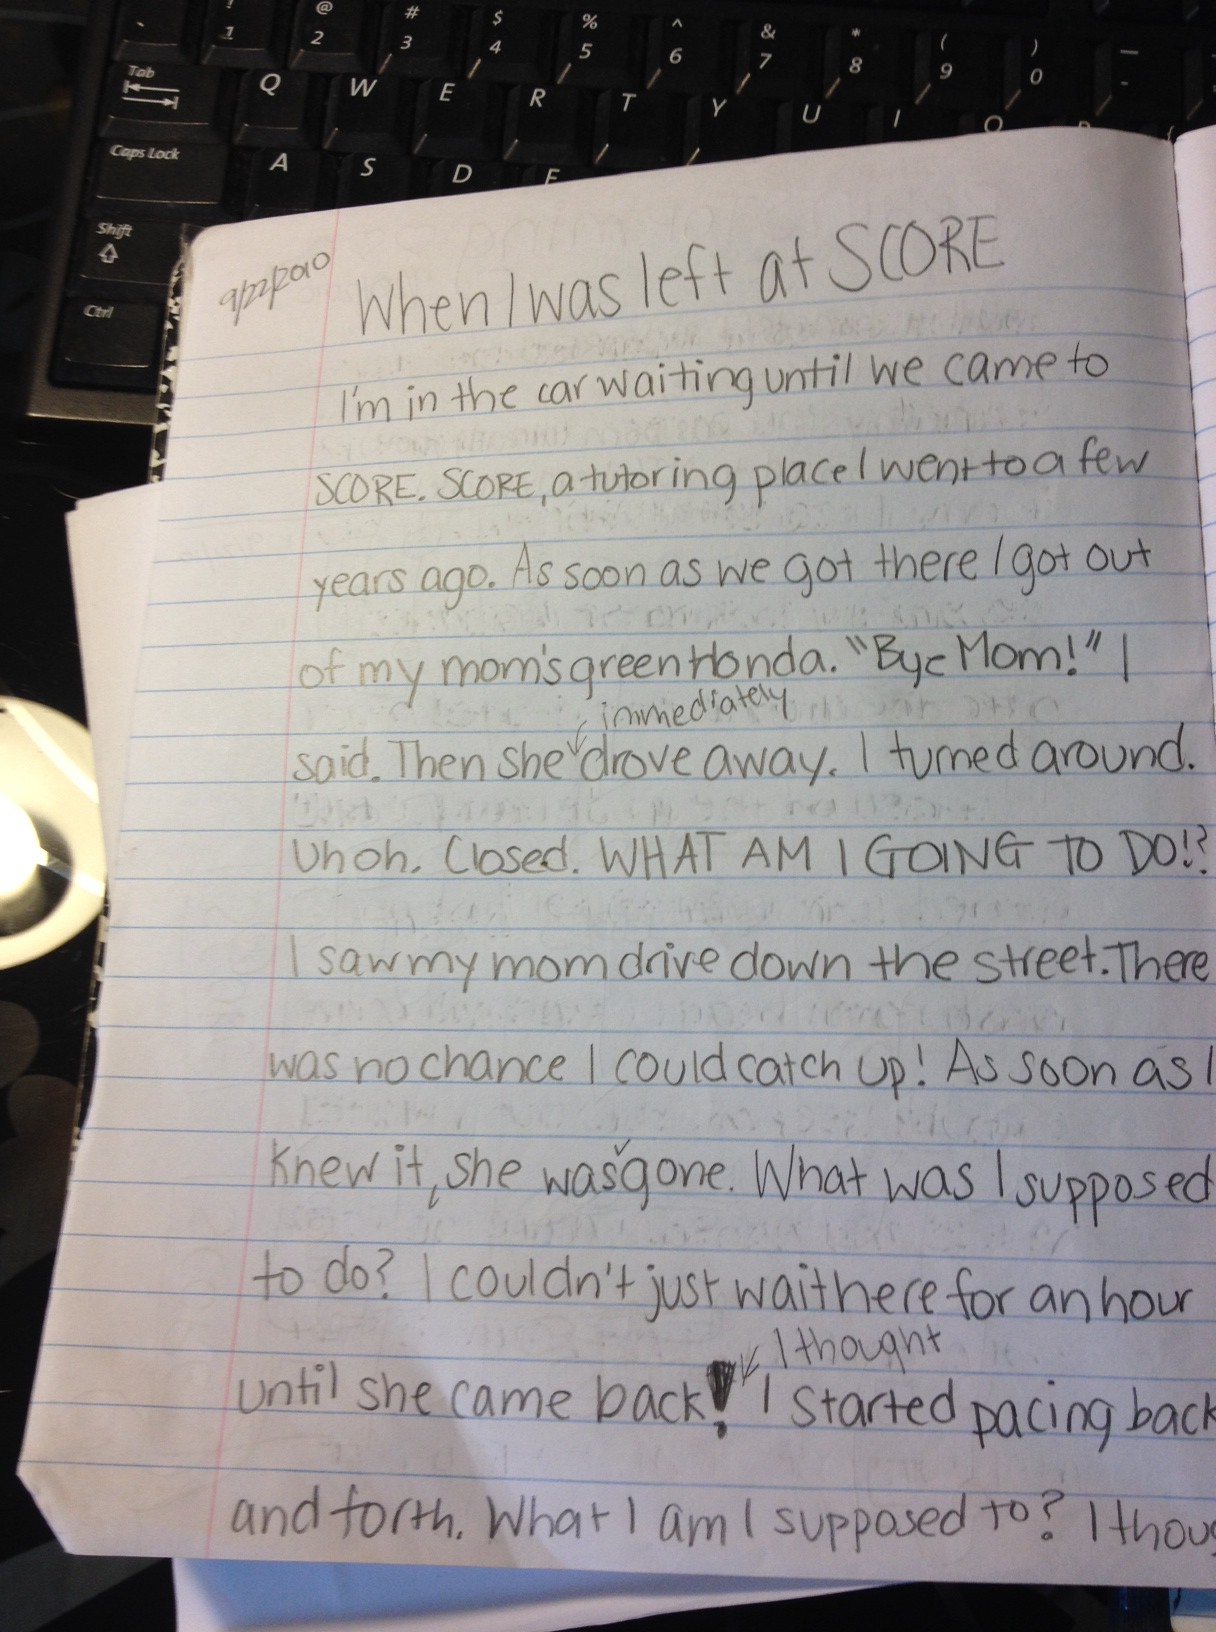 ! @ # $ % ^ & * ( ) _
` 1 2 3 4 5 6 7 8 9 0 -
Tab Q W E R T Y U I O P {
Caps Lock A S D F
Shift
Ctrl
9/22/2010
When I was left at SCORE
I'm in the car waiting until we came to
SCORE. SCORE, a tutoring place I went to a few
years ago. As soon as we got there I got out
of my mom's green Honda. "Bye Mom!" I
immediately
said. Then she drove away. I turned around.
Uh oh. Closed. WHAT AM I GOING TO DO!?
I saw my mom drive down the street. There
was no chance I could catch up! As soon as I
knew it, she was gone. What was I supposed
to do? I couldn't just wait here for an hour
I thought
until she came back! I started pacing back
and forth. What I am I supposed to? I thoug